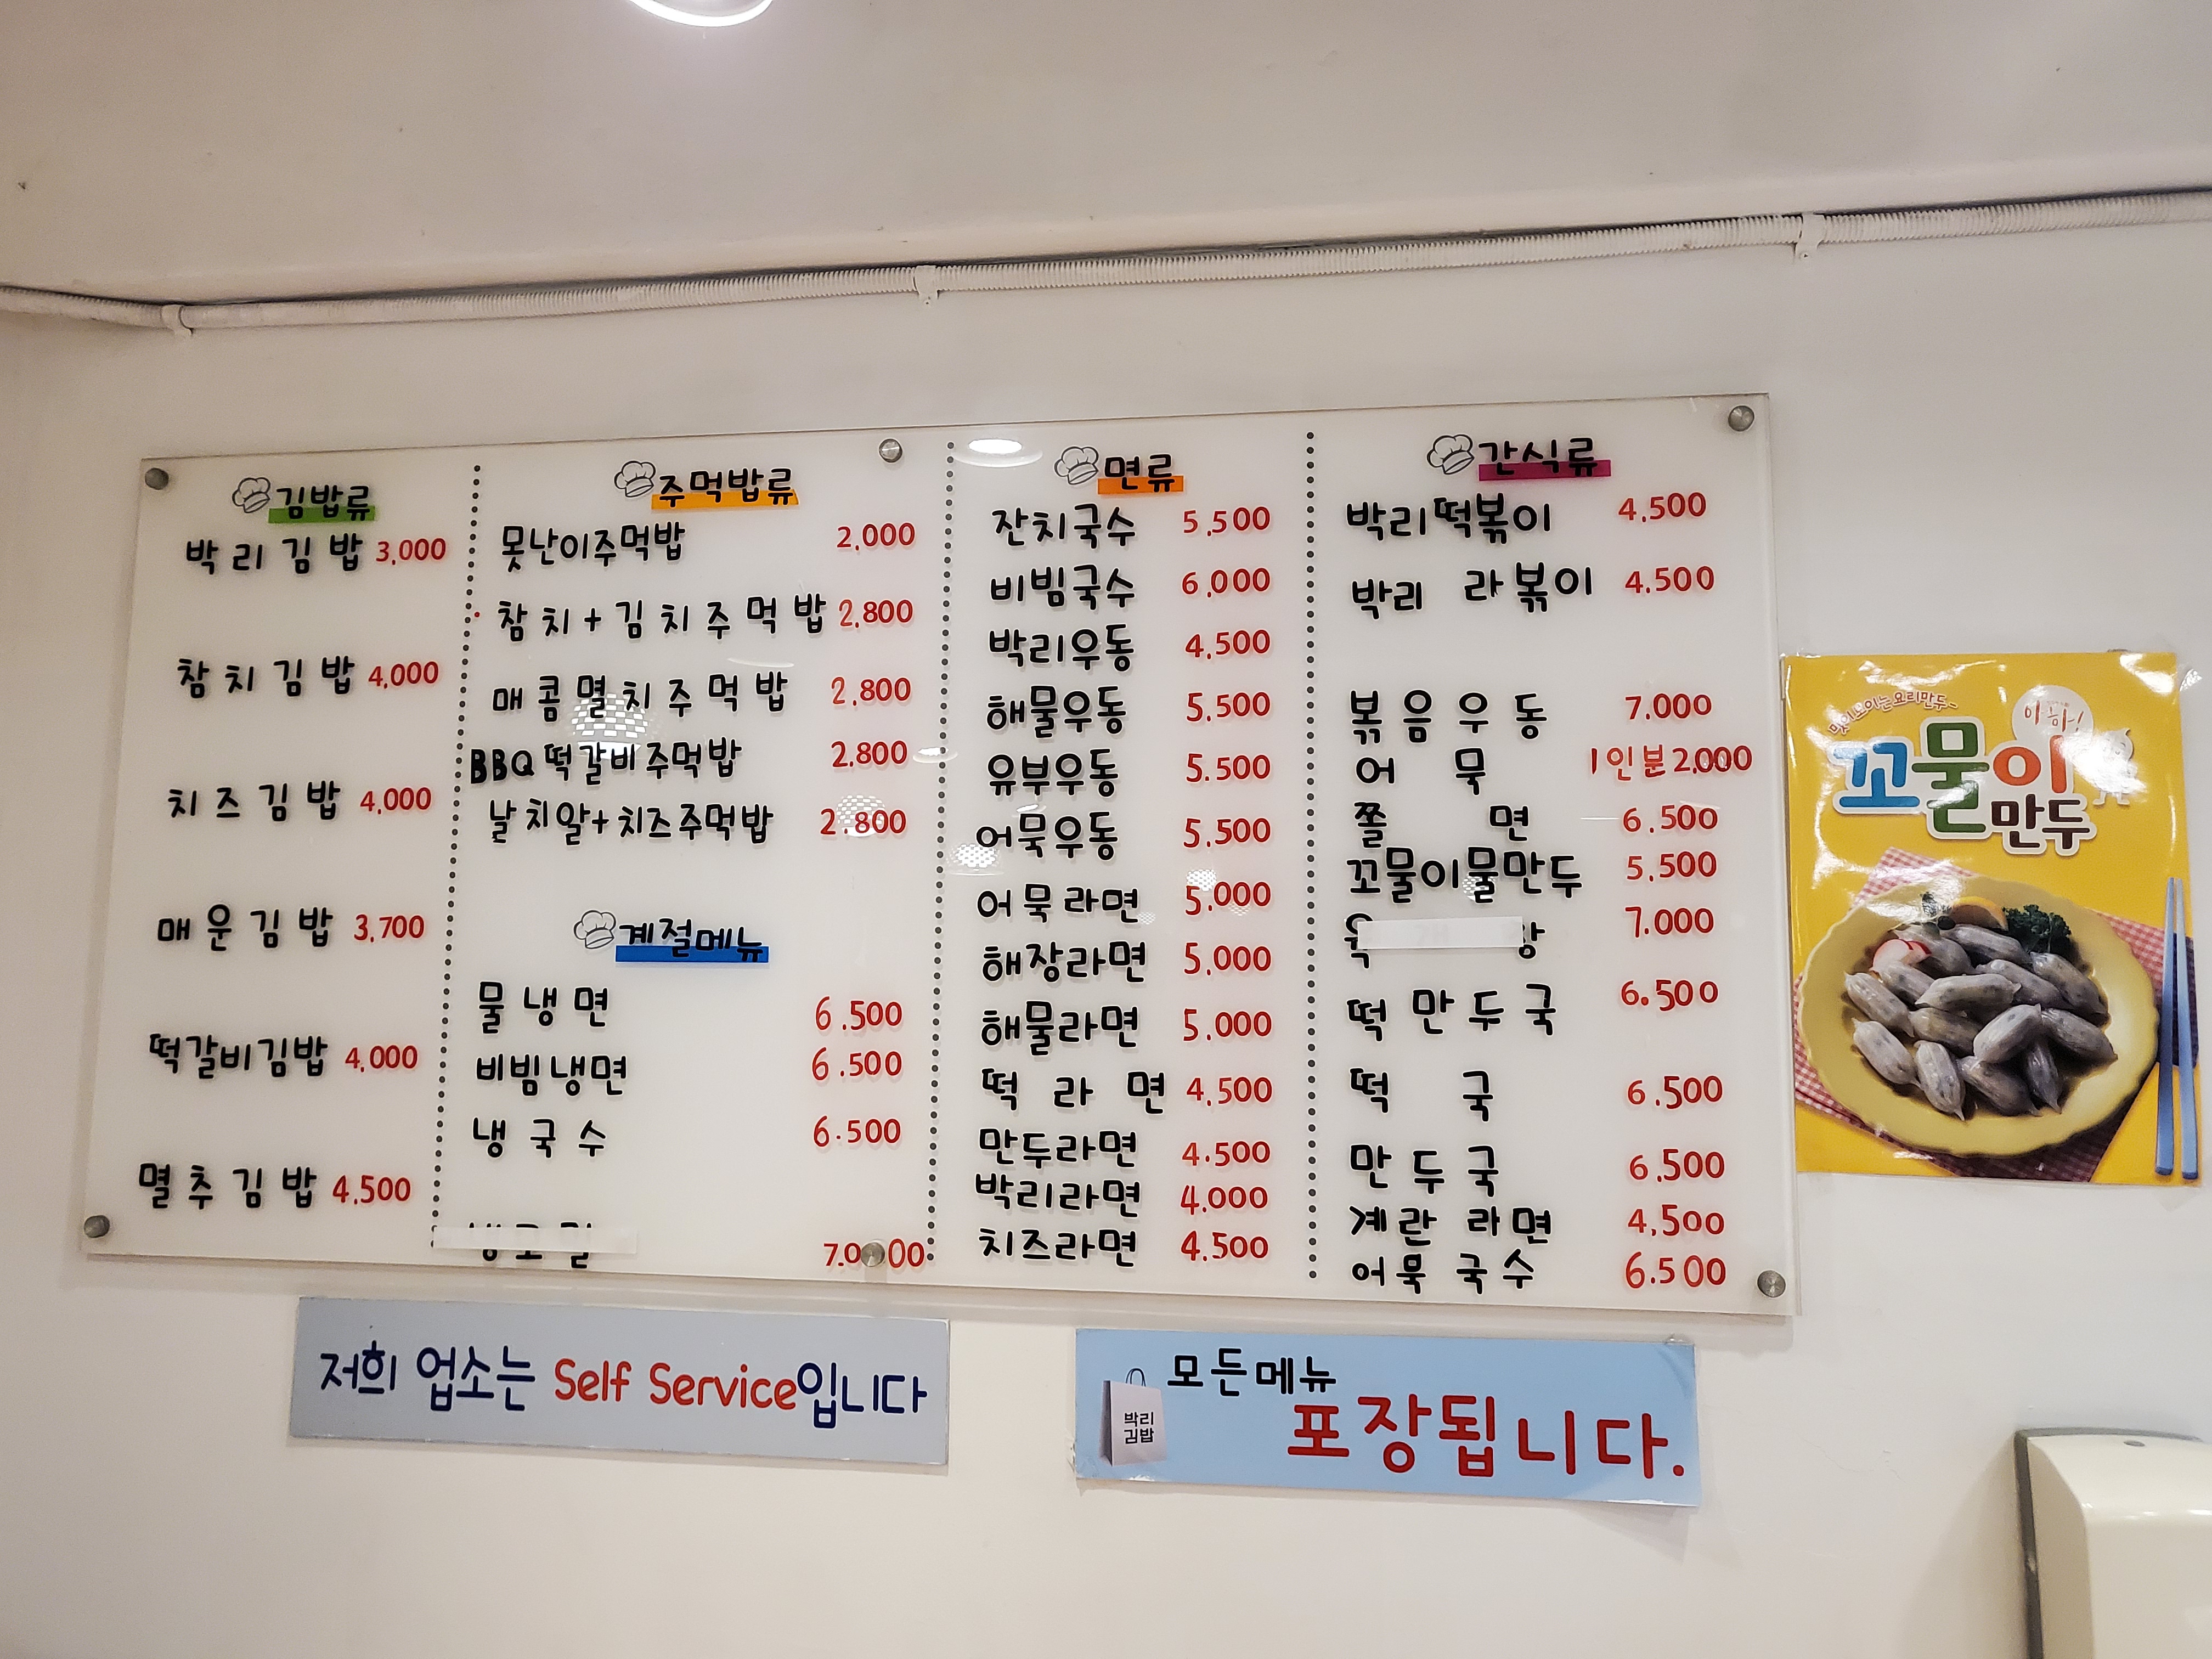 김밥류
박리김밥 3,000
참치김밥 4,000
치즈김밥 4,000
매운김밥 3,700
떡갈비김밥 4,000
멸추김밥 4,500
주먹밥류
못난이주먹밥 2,000
참치+김치주먹밥 2,800
매콤멸치주먹밥 2,800
BBQ떡갈비주먹밥 2,800
날치알+치즈주먹밥 2.800
계절메뉴
물냉면 6.500
비빔냉면 6.500
냉국수 6.500
7.000
면류
잔치국수 5,500
비빔국수 6,000
박리우동 4,500
해물우동 5,500
유부우동 5.500
어묵우동 5.500
어묵라면 5.000
해장라면 5,000
해물라면 5.000
떡라면 4,500
만두라면 4.500
박리라면 4.000
치즈라면 4.500
간식류
박리떡볶이 4.500
박리 라볶이 4.500
볶음우동 7.000
어묵 1인분 2.000
쫄면 6.500
꼬물이물만두 5.500
7.000
떡만두국 6.500
떡국 6.500
만두국 6.500
계란 라면 4,500
어묵 국수 6.500
맛있보이는요리만두~
아하!
꼬물이
만두
저희 업소는 Self Service입니다
박리
김밥
모든메뉴
포장됩니다.